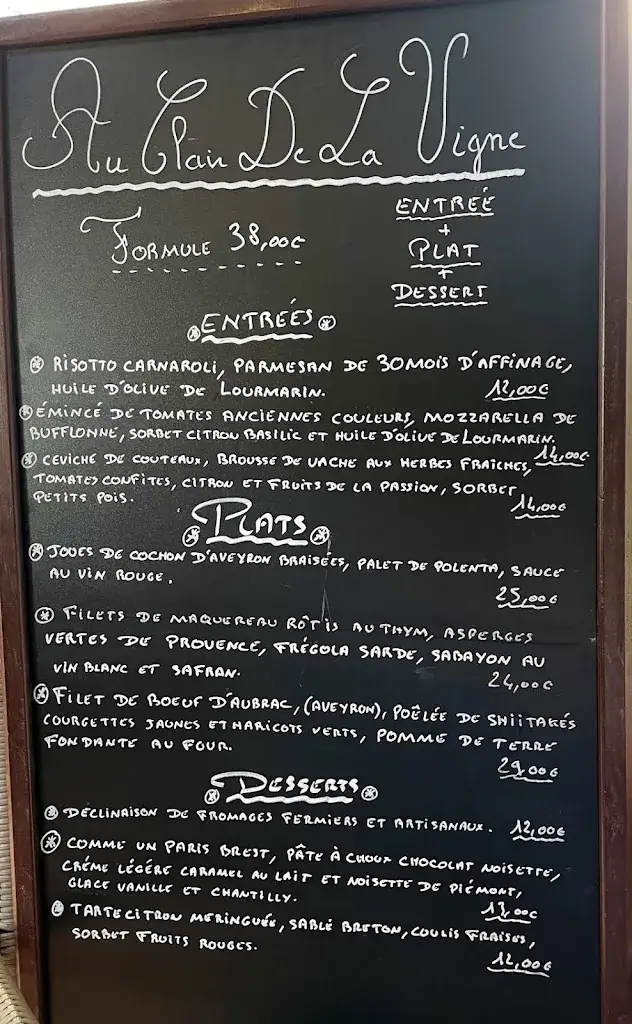 Au Plan De La Vigne
Formule 38,00€
ENTREÉ
+
PLAT
+
DESSERT
ENTREÉS
RISOTTO CARNAROLI, PARMESAN DE 30MOIS D'AFFINAGE,
HUILE D'OLIVE DE LOURMARIN. 12,00€
ÉMINCÉ DE TOMATES ANCIENNES COULEURS, MOZZARELLA DE
BUFFLONNE, SORBET CITRON BASILIC ET HUILE D'OLIVE DE LOURMARIN.
14,00€
CEVICHE DE COUTEAUX, BROUSSE DE VACHE AUX HERBES FRAÎCHES,
TOMATES CONFITES, CITRON ET FRUITS DE LA PASSION, SORBET
PETITS POIS. 14,00€
PLATS
JOUES DE COCHON D'AVEYRON BRAISÉES, PALET DE POLENTA, SAUCE
AU VIN ROUGE.
25,00€
FILETS DE MAQUEREAU RÔTIS AU THYM, ASPERGES
VERTES DE PROVENCE, FRÉGOLA SARDE, SABAYON AU
VIN BLANC ET SAFRAN. 24,00€
FILET DE BOEUF D'AUBRAC, (AVEYRON), POÊLÉE DE SHIITAKÉS
COURGETTES JAUNES ET HARICOTS VERTS, POMME DE TERRE
FONDANTE AU FOUR. 29,00€
DESSERTS
DÉCLINAISON DE FROMAGES FERMIERS ET ARTISANAUX. 12,00€
COMME UN PARIS BREST, PÂTE À CHOUX CHOCOLAT NOISETTE,
CRÉME LÉGÉRE CARAMEL AU LAIT ET NOISETTE DE PIÉMONT,
GLACE VANILLE ET CHANTILLY. 13,00€
TARTE CITRON MERINGUÉE, SABLÉ BRETON, COULIS FRAISES,
SORBET FRUITS ROUGES. 12,00€